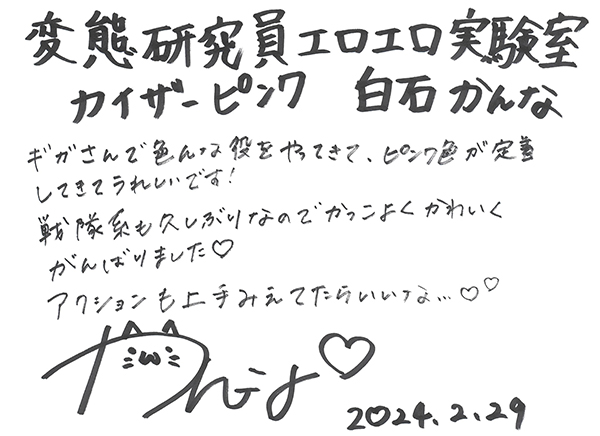 変態研究員エロエロ実験室
カイザーピンク 白石かんな
ギガさんで色んな役をやってきて、ピンク色が定着
してきてうれしいです!
戦隊系も久しぶりなのでかっこよくかわいく
がんばりました♡
アクションも上手みえてたらいいな…♡♡
かんな♡
2024.2.29